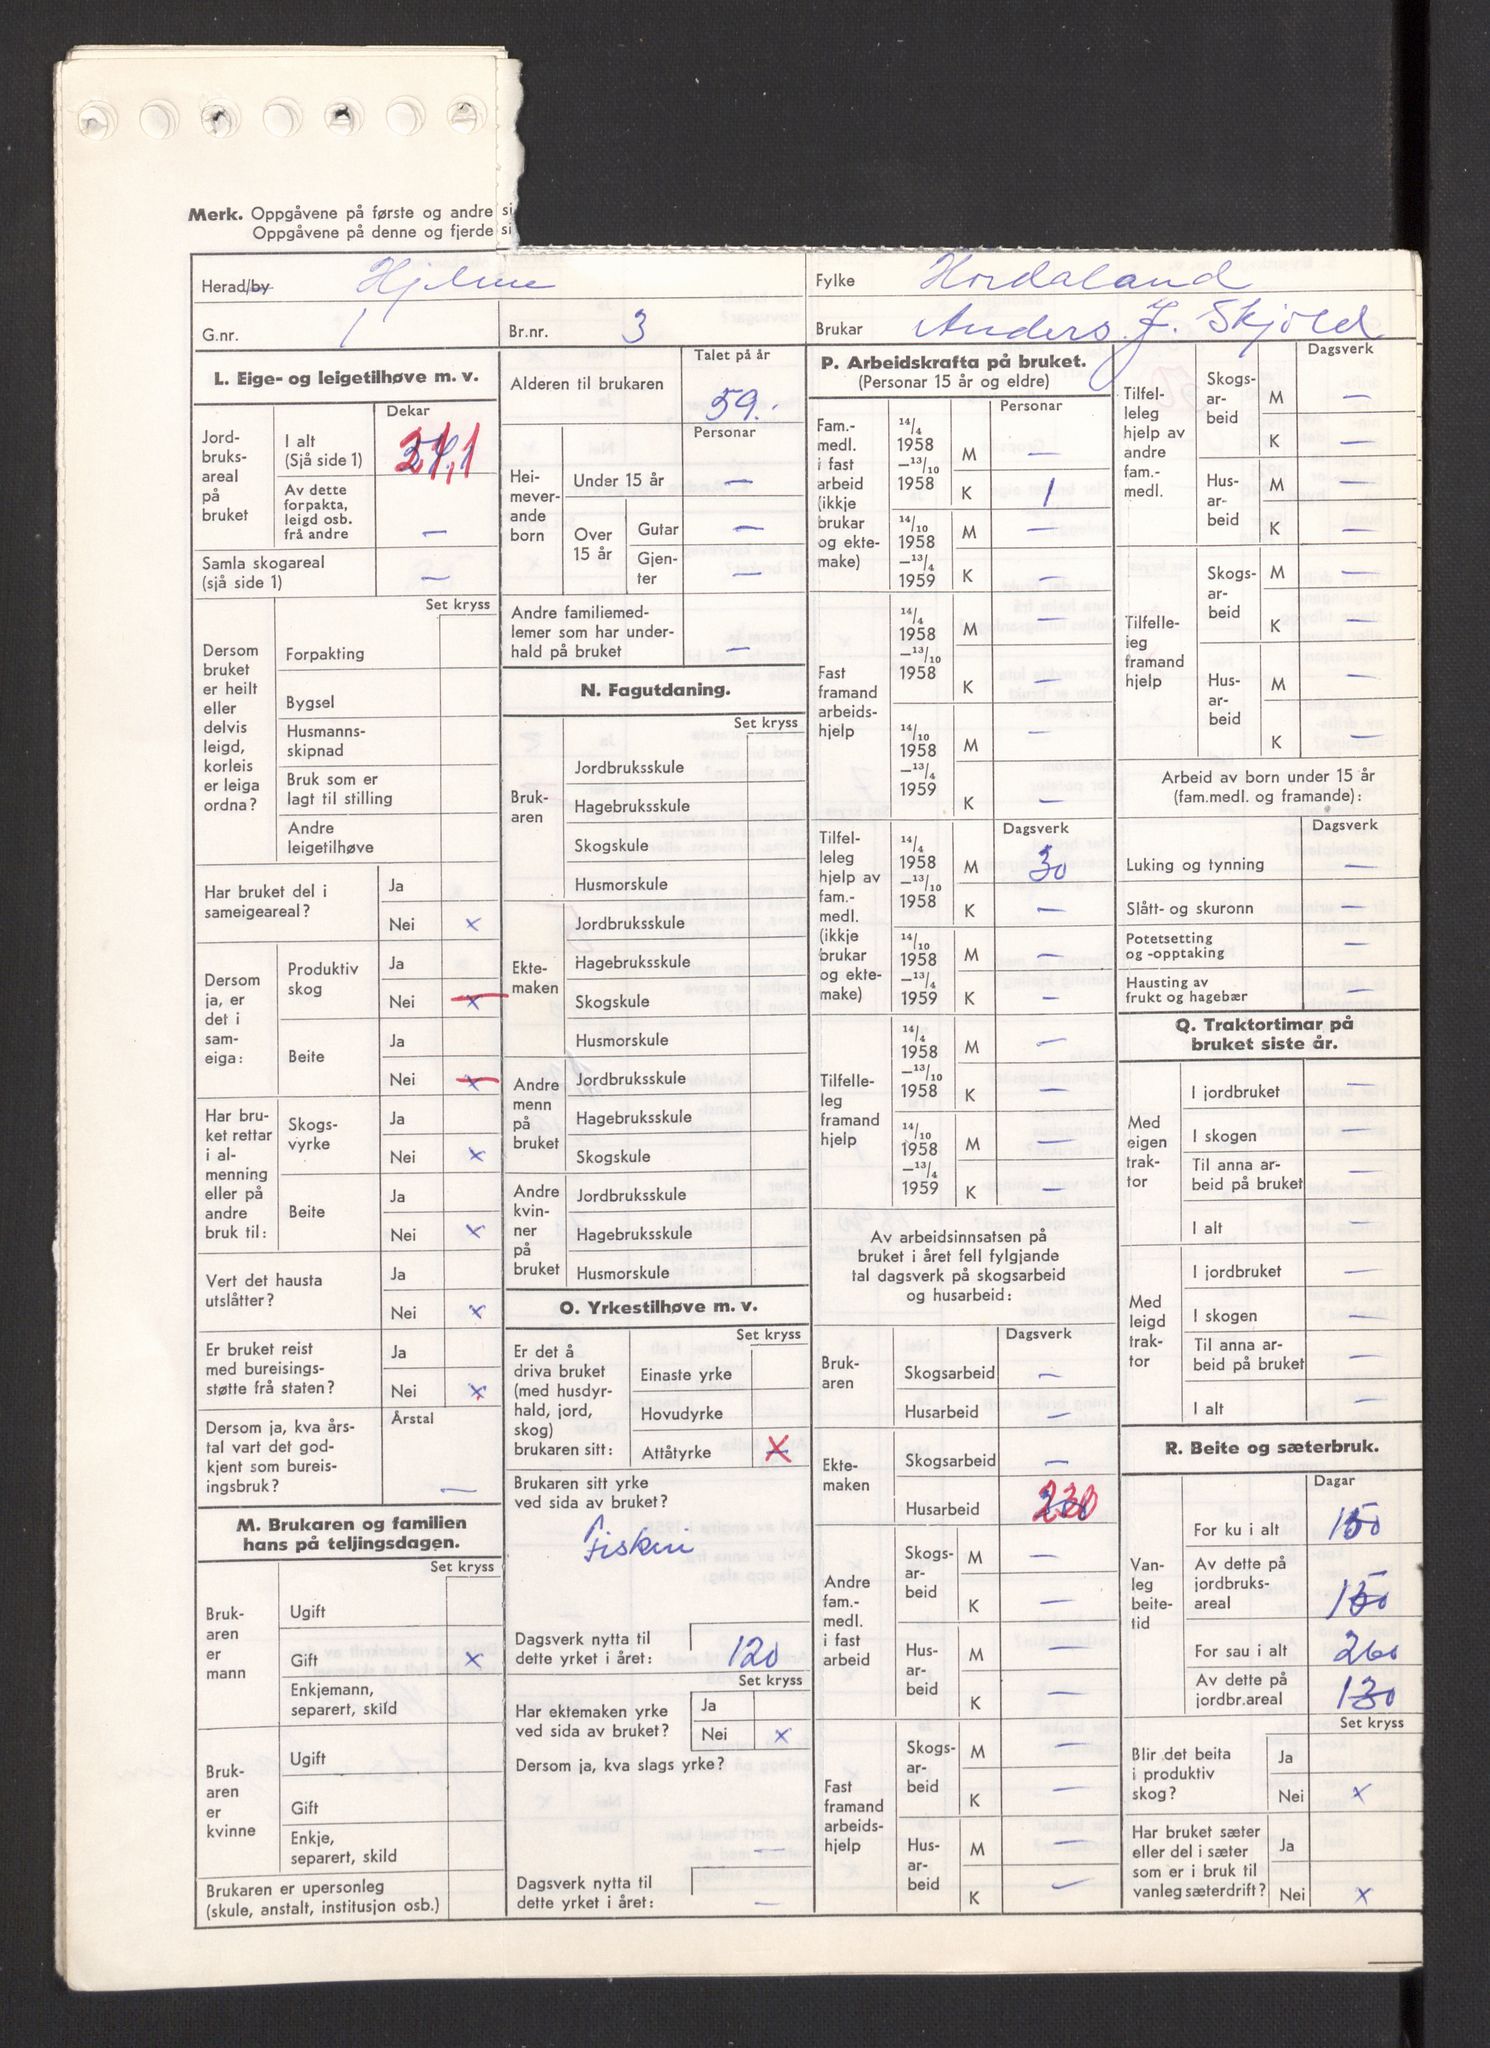 Merk. Oppgåvene på første og andre si
Oppgåvene på denne og fjerde si
Herad/by Hjelme
Fylke Hordaland
G.nr. 1
Br.nr. 3
Brukar Anders J. Skjold
L. Eige- og leigetilhøve m. v.
Dekar
Jord-
bruks-
areal
på
bruket
I alt
(Sjå side 1)
Av dette
forpakta,
leigd osb.
frå andre —
Samla skogareal
(sjå side 1) —
Set kryss
Dersom
bruket
er heilt
eller
delvis
leigd,
korleis
er leiga
ordna?
Forpakting
Bygsel
Husmanns-
skipnad
Bruk som er
lagt til stilling
Andre
leigetilhøve
Har bruket del i
sameigeareal?
Ja
Nei x
Dersom
ja, er
det i
sam-
eiga:
Produktiv
skog
Ja
Nei x
Beite
Ja
Nei x
Har bru-
ket rettar
i al-
menning
eller på
andre
bruk til:
Skogs-
vyrke
Ja
Nei x
Beite
Ja
Nei x
Vert det hausta
utslåtter?
Ja
Nei x
Er bruket reist
med bureisings-
støtte frå staten?
Ja
Nei x
Dersom ja, kva års-
tal vart det god-
kjent som bureis-
ingsbruk?
Årstal
—
M. Brukaren og familien
hans på teljingsdagen.
Set kryss
Bruk-
aren
er
mann
Ugift
Gift x
Enkjemann,
separert, skild
Bruk-
aren
er
kvinne
Ugift
Gift
Enkje,
separert, skild
Brukaren er upersonleg
(skule, anstalt, institusjon osb.)
Talet på år
Alderen til brukaren 59.
Personar
Hei-
mever-
ande
born
Under 15 år —
Over
15 år
Gutar —
Gjen-
ter —
Andre familiemed-
lemer som har under-
hald på bruket —
N. Fagutdaning.
Set kryss
Bruk-
aren
Jordbruksskule
Hagebruksskule
Skogskule
Husmorskule
Ekte-
maken
Jordbruksskule
Hagebruksskule
Skogskule
Husmorskule
Andre
menn
på
bruket
Jordbruksskule
Hagebruksskule
Skogskule
Andre
kvin-
ner
på
bruket
Jordbruksskule
Hagebruksskule
Husmorskule
O. Yrkestilhøve m. v.
Set kryss
Er det å
driva bruket
(med husdyr-
hald, jord,
skog)
brukaren sitt:
Einaste yrke
Hovudyrke
Attåtyrke x
Brukaren sitt yrke
ved sida av bruket?
Fisker
Dagsverk nytta til
dette yrket i året: 120
Set kryss
Har ektemaken yrke
ved sida av bruket?
Ja
Nei x
Dersom ja, kva slags yrke?
—
Dagsverk nytta til
dette yrket i året: —
P. Arbeidskrafta på bruket.
(Personar 15 år og eldre)
Personar
Fam.-
medl.
i fast
arbeid
(ikkje
brukar
og ekte-
make)
14/4
1958
—13/10
1958
M —
K 1
14/10
1958
—13/4
1959
M —
K —
Fast
framand
arbeids-
hjelp
14/4
1958
—13/10
1958
M —
K —
14/10
1958
—13/4
1959
M —
K —
Dagsverk
Tilfel-
leleg
hjelp av
fam.-
medl.
(ikkje
brukar
og ekte-
make)
14/4
1958
—13/10
1958
M 30
K —
14/10
1958
—13/4
1959
M —
K —
Tilfelle-
leg
framand
hjelp
14/4
1958
—13/10
1958
M —
K —
14/10
1958
—13/4
1959
M —
K —
Av arbeidsinnsatsen på
bruket i året fell fylgjande
tal dagsverk på skogsarbeid
og husarbeid:
Dagsverk
Bruk-
aren
Skogsarbeid —
Husarbeid —
Ekte-
maken
Skogsarbeid —
Husarbeid 230
Andre
fam.-
medl.
i fast
arbeid
Skogs-
ar-
beid
M —
K —
Hus-
ar-
beid
M —
K —
Fast
framand
arbeids-
hjelp
Skogs-
ar-
beid
M —
K —
Hus-
ar-
beid
M —
K —
Dagsverk
Tilfel-
leleg
hjelp av
andre
fam.-
medl.
Skogs-
ar-
beid
M —
K —
Hus-
ar-
beid
M —
K —
Tilfelle-
leg
framand
hjelp
Skogs-
ar-
beid
M —
K —
Hus-
ar-
beid
M —
K —
Arbeid av born under 15 år
(fam.medl. og framande):
Dagsverk
Luking og tynning —
Slått- og skuronn —
Potetsetting
og -opptaking —
Hausting av
frukt og hagebær —
Q. Traktortimar på
bruket siste år.
Med
eigen
trak-
tor
I jordbruket —
I skogen —
Til anna ar-
beid på bruket —
I alt —
Med
leigd
trak-
tor
I jordbruket —
I skogen —
Til anna ar-
beid på bruket —
I alt —
R. Beite og sæterbruk.
Dagar
Van-
leg
beite-
tid
For ku i alt 150
Av dette på
jordbruks-
areal 150
For sau i alt 260
Av dette på
jordbr.areal 130
Set kryss
Blir det beita
i produktiv
skog?
Ja
Nei x
Har bruket sæter
eller del i sæter
som er i bruk til
vanleg sæterdrift?
Ja
Nei x